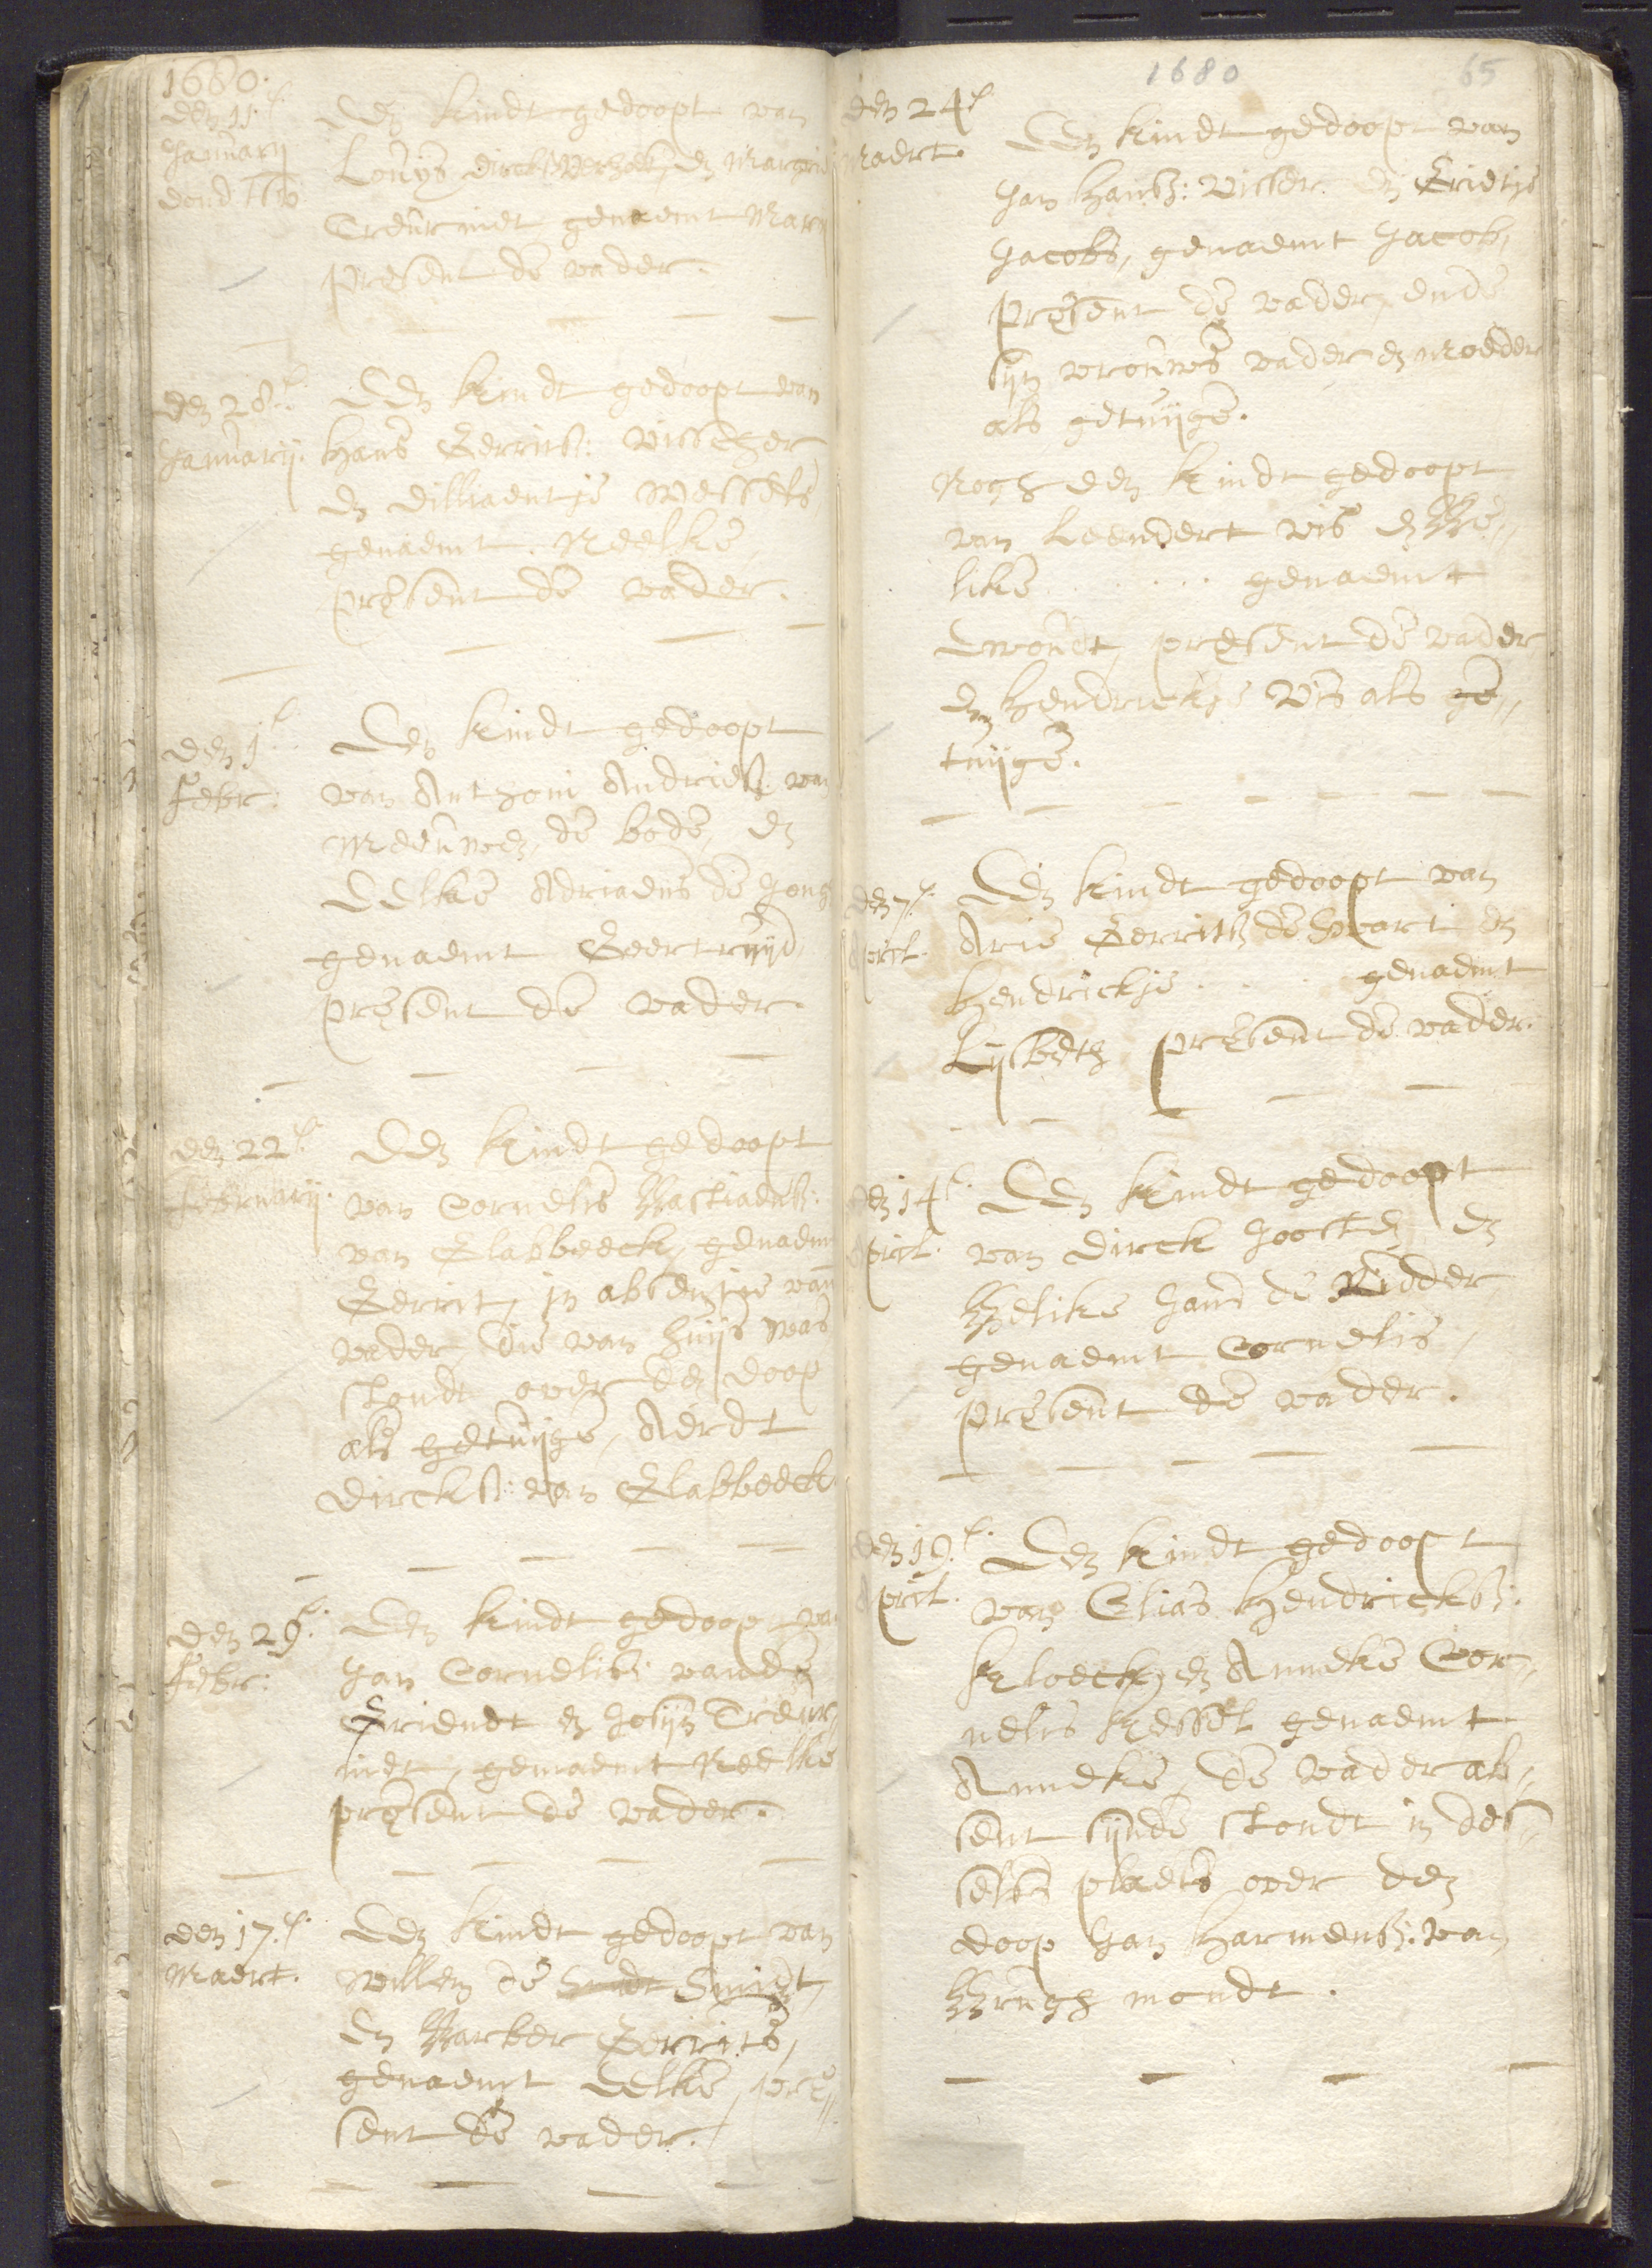 1680.
den 11e.
Januarij
Een kindt gedoopt van
Louijs dircks Verhoek, en Margrie
Treurniet genaemt Mar
present de vader.
den 28e.
Januarij.
Een kindt gedoopt van
Hans Gerrits: Visscher
en dilliaentje Wessels
genaemt Neelke
present de vader.
den 1e.
Febr:
Een kindt gedoopt
van Anthoni Andriess: van
Meeuwen, de bode, en
Eelke Adriaens de Jong
genaemt Geertruijd,
present de vader.
den 22e.
Februarij.
Een kindt gedoopt
van Cornelis Bastiaenss:
van Glabbeeck, genaemt
Gerrit, in absentie van
vader, die van huijs was
stondt over den doop
als getuijge, Aerdt
Dircks: van Glabbeeck
den 29e.
Febr:
Een kindt gedoopt va
Jan Corneliss: vande
Griendt en Josijn Treur
niet, genaemt Neelke
present de vader.
den 17e.
Maert.
Een kindt gedoopt van
Willem de Smidt,
en Barber Gerrits,
genaemt Eelke, pre
sent de vader.
1680 65
den 24e
Maert.
Een kindt gedoopt van
Jan Hanss: Visser en Grietje
Jacobs, genaemt Jacob,
present de vader, ende
sijn vrouws vader en moeder
als getuijge.
Nogh een kindt gedoopt
van Leendert Vis en Be„
like . . . . genaemt
Ewout, present de vader
en Hendrickje Vis als ge„
tuijge.
den 7e.
April.
Een kindt gedoopt van
Arie Gerritss de Swart en
Hendrickje . . . genaemt
Lijsbeth present de vader.
den 14e.
April.
Een kindt gedoopt
van Dirck Joosten en
Belike Jans de Ridder,
genaemt Cornelis,
present de vader.
den 19e.
April.
Een kindt gedoopt
van Elias Hendrickss:
Kloeck, en Anneke Cor„
nelis Kessel genaemt
Anneke, de vader ab„
sent sijnde stondt in des„
selfs plaets over den
doop Jan Harmenss: van
Brugh mondt.